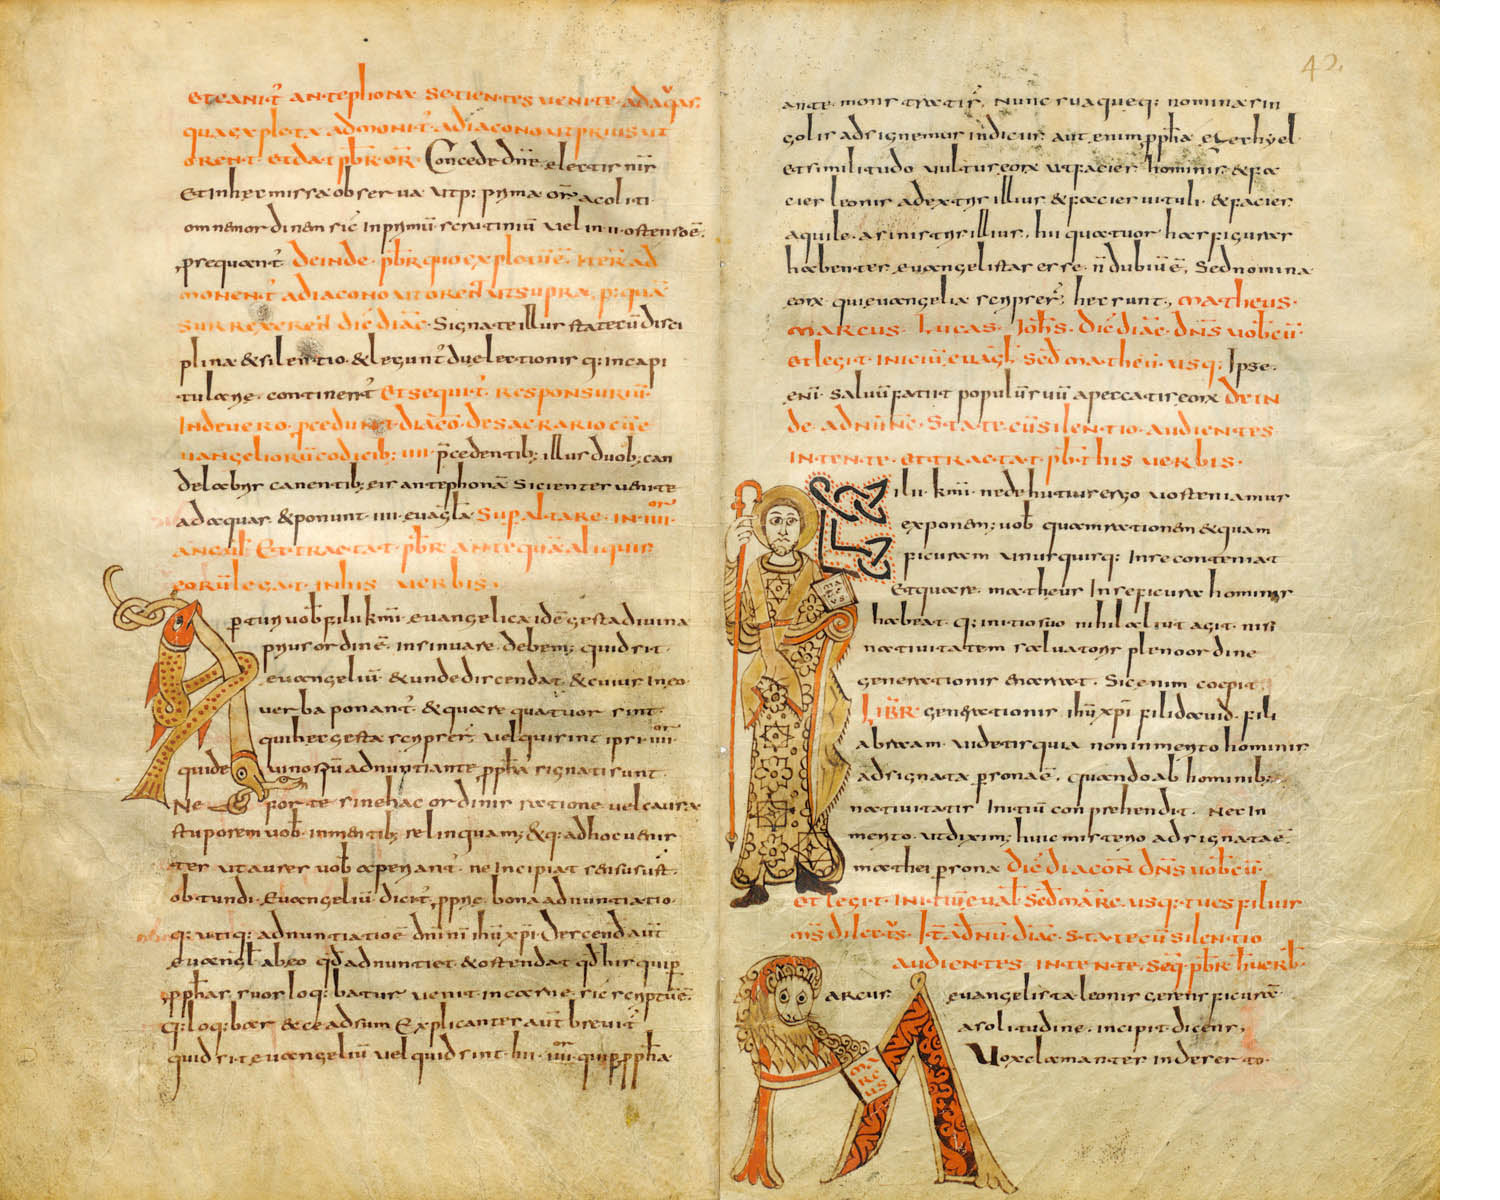 et canit̄ antephona sitientes venite ad aquas
qua expleta admonit̄ a diacono ut prius ut
orent. et dat p̄br or̄. Concede dn̄e electis nr̄is
et in hec missa observa utp: prima or̄ acoliti
omnem ordinem sic in primū scrutiniū vel in ii ostensūē.
prequant̄ deinde p̄br quo expletū ē. iterū ad
monent̄ a diacono ut orent ut supra. p: quā
surrexerent dic̄ diac̄. Signate illus state cū disci
plina & silentio. & legunt̄ due lectiones q: in capi
tulare. continent̄ et sequit̄ responsuriū.
Inde vero. pcedunt diac̄o. de sacrario cū e
vangeliorū codicib; iiii. p̄cedentib; illus duob; can
delabris canentib; eis antephonā Sicientes venite
ad aquas. & ponunt iiii. evāgl̄a Sup̄ altare. in iiii.or
angul: Et tractat. p̄br antequā aliquis
eorū legat. in his verbis.
Aperturi vob̄ filii km̄i. evangelica idē gesta divina
prius ordinē. insinuare. debem; quid sit.
evangeliū & unde discendat & cuius in eo
verba ponant̄. & quare quatuor sint.
qui hec gesta scripser̄. vel qui sint ipsi iiii.or
quide divino sp̄u adnuntiante pph̄a signati sunt.
Ne forte sine hac ordinis ratione vel causa
stuporem vob̄. in mentib; relinquam; & q: ad hoc venis
tis ut aures vob̄ aperiant̄. ne incipiat sensus ust̄.
obtundi. Evangeliū dicit̄. pprie. bona adnuntiatio.
q: utiq: adnuntiatio ē dn̄i nr̄i ihū xp̄i. Descend aut̄
evangl̄. ab eo qd̄ adnuntiet. & ostendat qd̄ his qui p̄
pph̄as suos loq:batur venit in carne. sic scriptū ē.
Q: loq:bar & ce adsum Explicantes aut̄ breviť
quid sit evangeliū vel quid sint hii .iiii.or qui p̄ pph̄a
42.
ante. monstrati s̄. Nunc suaqueq: nomina sin
golis adsignemus indicius. ait enim pph̄a ezechyel.
et similitudo vultus eorū ut facies hominis & fa
cies leonis ad extris illius & facies vituli & facies
aquile. asinistris illius. hii quatuor has figuras
habentes. evangelistas esse. n̄ dubiū ē. Sed nomina
eorū qui evangelia scripser̄. hec sunt. Matheus.
Marcus. Lucas. Joh̄s. Dic̄ diac̄. dn̄s vob̄cū.
et legit iniciū evāgl̄. sc̄d matheū. usq: Ipse.
enī. salvū faciet populū suū a peccatis eorū. dein
de. adnūn̄c. State cū silentio. audientes
intente. et tractat. p̄br his verbis.
Filii. km̄i. ne de hiutius ergo vos teniamus
exponem; vob̄ quam rationem & quam
figuram unus quisq: in se contineat
Et quare. matheus in se figura hominis
habeat. q: initio suo nihil aliut agit. nisi
nativitatem salvatoris pleno ordine
generationis enarrat. Sic enim coepit
Lib̄r generationis. ihū xp̄i filii david. filii
abraam. videtis quia non inmerito hominis
adsignata p̄sona ē. quando ab hominib;
nativitatis Initiū conprehendit. Nec in
merito. ut dixim; huic misterio adsignata ē.
mathei p̄sona Dic̄ diacōn dn̄s vob̄cū.
et legit. initiū evāl̄. sc̄d māre. usq: tu es filius
ms̄ dilect̄s. It̄ ad nū. diac̄. State cū silentio
audientes intente. seq: p̄br h̄ verb̄.
Marcus evangelista leonis gerens figurā
a solitudine. incipit dicens.
Vox clamantes in deserto.
AN
GE
LUS
MA
RC
US